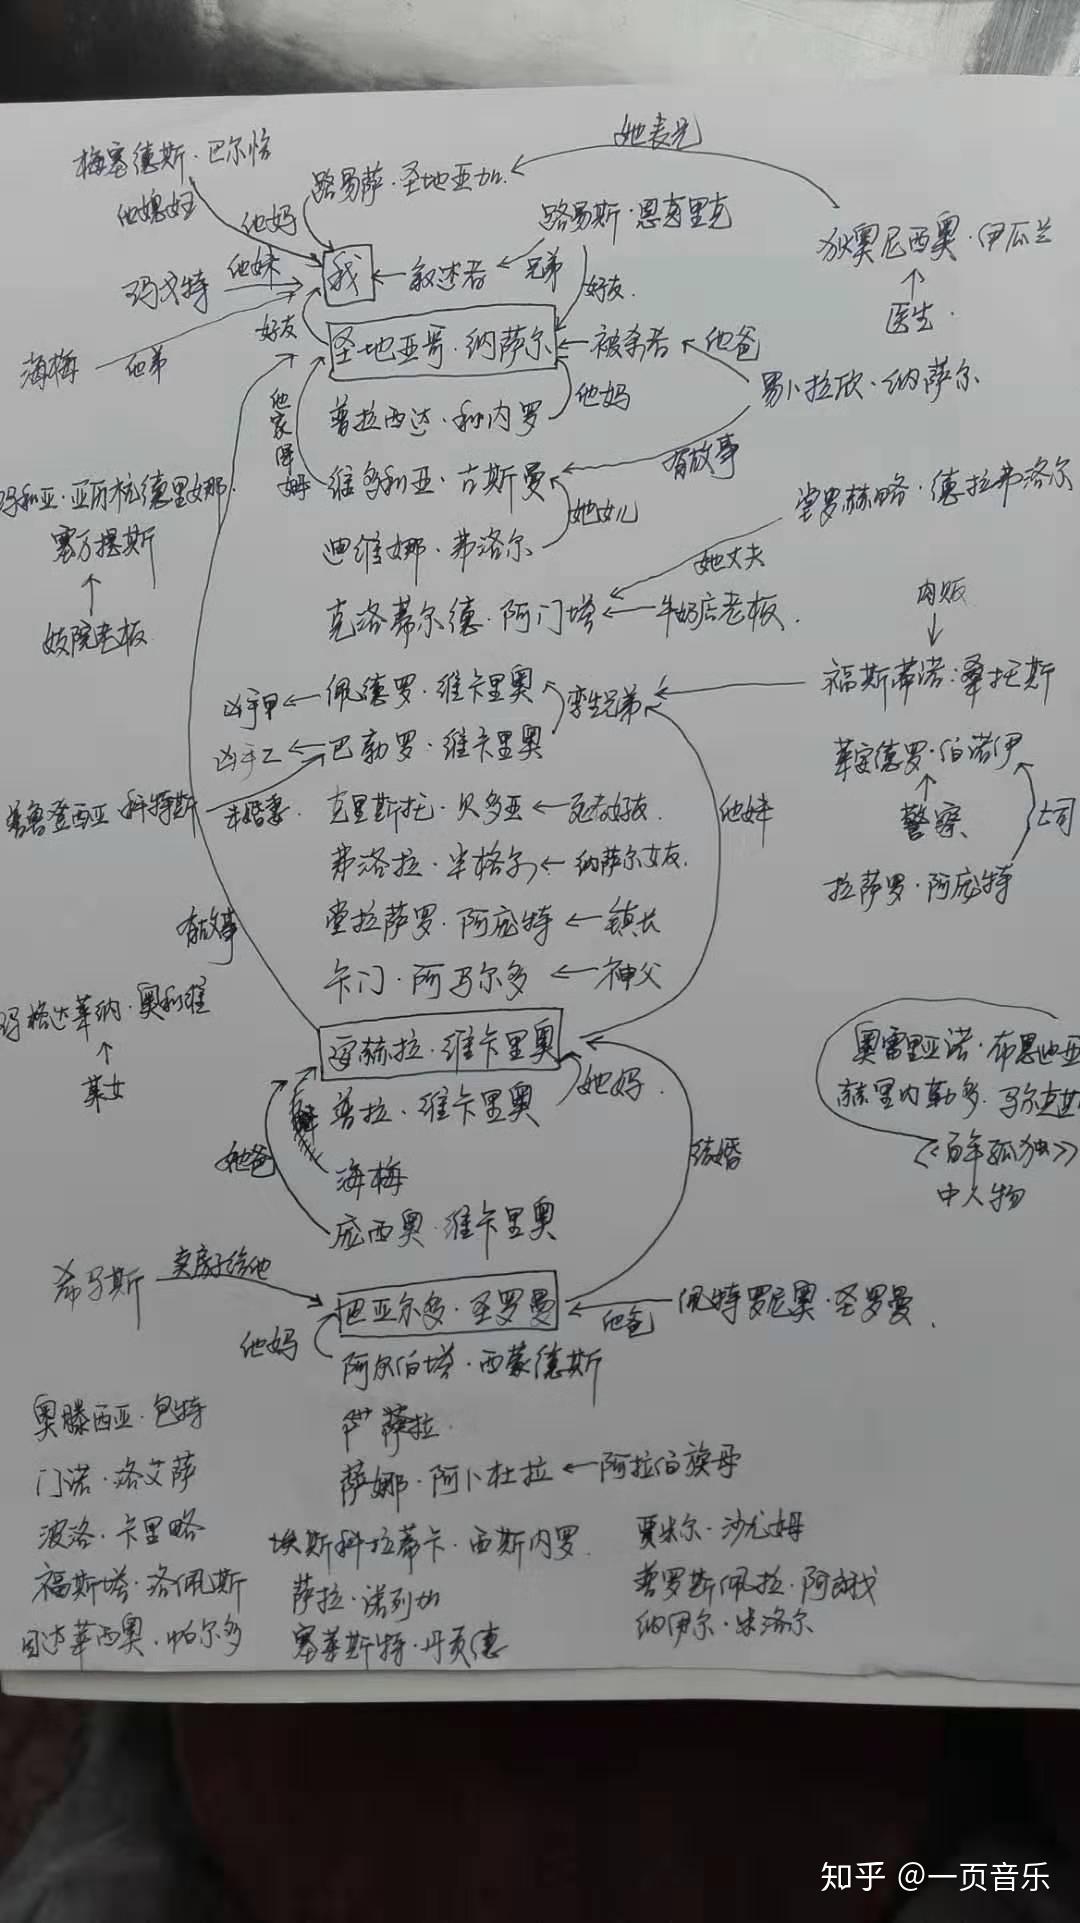 她表兄
梅塞德斯·巴尔恰
他媳妇
他妈
路易萨·圣地亚加
路易斯·恩里克
狄奥尼西奥·伊瓜兰
医生
玛戈特
他妹
我
叙述者
兄弟
好友
海梅
他弟
好友
圣地亚哥·纳萨尔
被杀者
他爸
易卜拉欣·纳萨尔
普拉西达·利内罗
他妈
他家
姆
维多利亚·古斯曼
有故事
玛利亚·亚历杭德里娜·
塞万提斯
妓院老板
她女儿
迪维娜·弗洛尔
堂罗赫略·德拉弗洛尔
她丈夫
克洛蒂尔德·阿门塔
牛奶店老板
肉贩
福斯蒂诺·桑托斯
凶手甲
佩德罗·维卡里奥
孪生兄弟
凶手乙
巴勃罗·维卡里奥
莱安德罗·伯诺伊
警察
上司
拉萨罗·阿庞特
普鲁登西亚·科特斯
未婚妻
克里斯托·贝多亚
死者好友
他妹
弗洛拉·米格尔
纳萨尔女友
堂拉萨罗·阿庞特
镇长
有故事
卡门·阿马尔多
神父
玛格达莱纳·奥利维
安赫拉·维卡里奥
普拉·维卡里奥
她妈
她爸
海梅
庞西奥·维卡里奥
结婚
奥雷里亚诺·布恩迪亚
赫里内勒多·马尔克斯
《百年孤独》
中人物
希乌斯
卖房子给他
巴亚尔多·圣罗曼
他爸
佩特罗尼奥·圣罗曼
他妈
阿尔伯塔·西蒙德斯
奥滕西亚·包特
萨拉
门诺·洛艾萨
萨娜·阿卜杜拉
阿拉伯族母
波洛·卡里略
埃斯科拉蒂卡·西斯内罗
贾米尔·沙尤姆
福斯塔·洛佩斯
萨拉·诺列加
普罗斯佩拉·阿朗戈
因达莱西奥·帕尔多
塞莱斯特·丹贡德
纳伊尔·米洛尔
知乎 @一页音乐